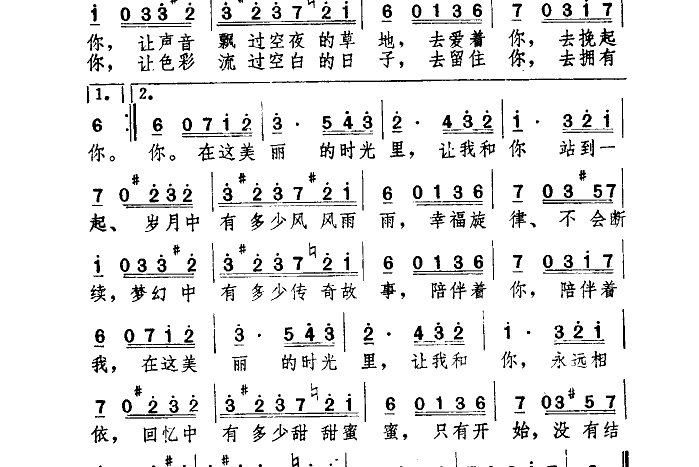 i 0 3 3 #2 | #3 2 3 7 ♮2 i | 6 0 1 3 6 | 7 0 3 i 7
你, 让声音 飘 过空夜 的草 地, 去爱着 你, 去挽起
你, 让色彩 流 过空白 的日 子, 去留住 你, 去拥有
1. 2.
6 :‖ 6 0 7 i 2 | 3 · 5 4 3 | 2 · 4 3 2 | i · 3 2 i
你。 你。在这美 丽 的时光 里, 让我和 你 站到一
7 0 #2 3 2 | #3 2 3 7 #2 i | 6 0 1 3 6 | 7 0 3 #5 7
起、 岁月中 有 多少风 风雨 雨, 幸福旋 律、 不 会断
i 0 3 3 #2 | #3 2 3 7 ♮2 i | 6 0 1 3 6 | 7 0 3 i 7
续, 梦幻 中 有 多少传 奇故 事, 陪伴着 你, 陪伴着
6 0 7 i 2 | 3 · 5 4 3 | 2 · 4 3 2 | i · 3 2 i
我, 在这美 丽 的时光 里, 让我和 你, 永远相
7 0 #2 3 2 | #3 2 3 7 ♮2 i | 6 0 1 3 6 | 7 0 3 #5 7
依, 回忆中 有 多少甜 甜蜜 蜜, 只有开 始, 没 有结